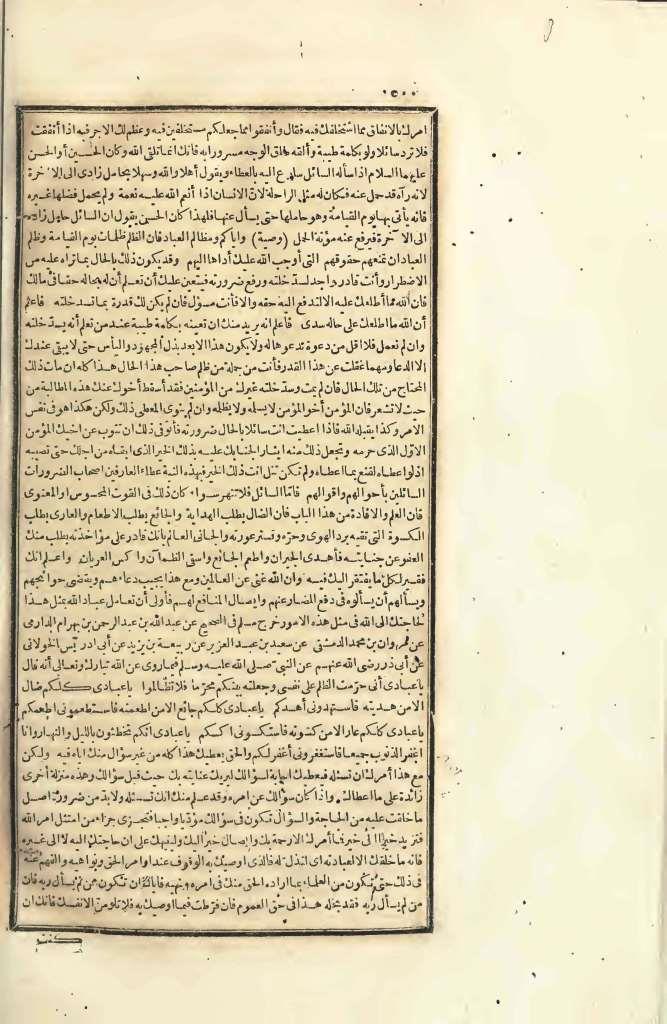 ٥٠٠
امرك بالانفاق مما استخلفك فيه فقال وأنفقوا مما جعلكم مستخلفين فيه وعظم لك الاجر فيه اذا أنفقت
فلا ترد سائلا ولو بكلمة طيبة وألقه طلق الوجه مسرورا به فانك انما تلقى الله وكان الحسين أو الحسن
عليهما السلام اذا سأله السائل سارع اليه بالعطاء ويقول أهلا والله وسهلا بحامل زادى الى الاخرة
لانه رآه قد حمل عنه فكان له مثل الراحلة لان الانسان اذا أنعم الله عليه نعمة ولم يحمل فضلها غيره
فانه يأتى بها يوم القيامة وهو حاملها حتى يسأل عنها فلهذا كان الحسن يقول ان السائل حامل زاده
الى الاخرة فيرفع عنه مؤنة الحمل (وصية) واياكم ومظالم العباد فان الظلم ظلمات يوم القيامة وظلم
العباد ان تمنعهم حقوقهم التى أوجب الله عليك أداها اليهم وقد يكون ذلك بالحال بما تراه عليه من
الاضطرار وأنت قادر واجد لسد خلته ورفع ضرورته فيتعين عليك أن تعلم أن له بحاله حقا فى مالك
فان الله مما أطلعك عليه الا لتدفع اليه حقه والا فأنت مسؤل فان لم يكن لك قدرة بما تسد خلته فاعلم
أن الله ما اطلعك على حاله سدى فاعلم انه يريد منك ان تعينه بكلمة طيبة عند من تعلم أنه يسد خلته
وان لم تعمل فلا اقل من دعوة تدعو هاله ولا يكون هذا الا بعد بذل المجهود واليأس حتى لا يبقى عندك
الا الدعا ومهما غفلت عن هذا القدر فأنت من جملة من ظلم صاحب هذا الحال هذا كله ان مات ذلك
المحتاج من تلك الحال فان لم يمت وسد خلته غيرك من المؤمنين فقد أسقط أخوك عنك هذه المطالبة من
حيث لا تشعر فان المؤمن أخو المؤمن لا يسلمه ولا يظلمه وان لم ينوى المعطى ذلك ولكن هكذا هو فى نفس
الامر وكذا يقبله الله فاذا اعطيت انت سائلا بالحال ضرورته فأنو فى ذلك ان تنوب عن اخيك المؤمن
الاول الذى حرمه وتجعل ذلك منه ايثار الجنابك عليه بذلك الخير الذى ابقاه من اجلك حتى تصيبه
اذ لو اعطاه لقنع بما اعطاه ولم تكن تنل انت ذلك الخير فبهذه النية عطاء العارفين اصحاب الضرورات
السائلين بأحوالهم واقوالهم فاما السائل فلا تنهر سواء كان ذلك فى القوت المحسوس او المعنوى
فان العلم والافادة من هذا الباب فان الضال يطلب الهداية والجائع يطلب الاطعام والعارى يطلب
الكسوة التى تقيه برد الهوى وحره وتستر عورته والجانى العالم بانك قادر على مؤاخذته يطلب منك
العفو عن جنايته فأهدى الحيران واطعم الجائع واسقى الظمآن واكس العريان واعلم انك
فقير لكل ما يفتقر اليك فيه وان الله غنى عن العالمين ومع هذا يجيب دعاءهم ويقضى حوائجهم
ويسألهم أن يسألوه فى دفع المضار عنهم وايصال المنافع لهم فأولى أن تعامل عباد الله بمثل هذا
لحاجتك الى الله فى مثل هذه الامور خرج مسلم فى الصحيح عن عبد الله بن عبد الرحمن بن بهرام الدارمى
عن مروان بن محمد الدمشقى عن سعيد بن عبد العزيز عن ربيعة بن يزيد عن أبى ادريس الخولانى
عن أبى ذر رضى الله عنهم عن النبى صلى الله عليه وسلم فيما روى عن الله تبارك وتعالى أنه قال
يا عبادى أنى حرمت الظلم على نفسى وجعلته بينكم محرما فلا تظالموا يا عبادى كلكم ضال
الامن هديته فاستهدونى أهدكم يا عبادى كلكم جائع الامن اطعمته فاستطعمونى اطعمكم
يا عبادى كلكم عار الامن كسوته فاستكسونى اكسكم يا عبادى انكم تخطئون بالليل والنهار وانا
اغفر الذنوب جميعا فاستغفرونى أغفر لكم والحق يعطيك هذا كله من غير سؤال منك اياه فيه ولكن
مع هذا أمرك ان تسئله فيعطيك اجابة لسؤالك ليريك عنايته بك حيث قبل سؤالك وهذه منزلة أخرى
زائدة على ما اعطاك واذا كان سؤالك عن امره وقد علم منك انك تسئله ولا بد من ضرورة اصل
ما خلقت عليه من الحاجة والسؤال فتكون فى سؤالك مؤديا واجبا فتجزى جزاء من امتثل امر الله
فتزيد خيرا الى خير فما أمرك الا رحمة بك وايصال خير اليك ولينبهك على ان حاجتك اليه لا الى غيره
فانه ما خلقك الا لعبادته اى لتذل له فالذى اوصيك به الوقوف عند اوامر الحق ونواهيه والفهم عنه
فى ذلك حتى تكون من العلماء بما اراده الحق منك فى امره ونهيه فاياك ان تكون ممن لم يسأل ربه فان
من لم يسأل ربه فقد بخله هذا فى حق العموم فان فرطت فيما اوصيك به فلا تلومن الا نفسك فانك ان
كنت